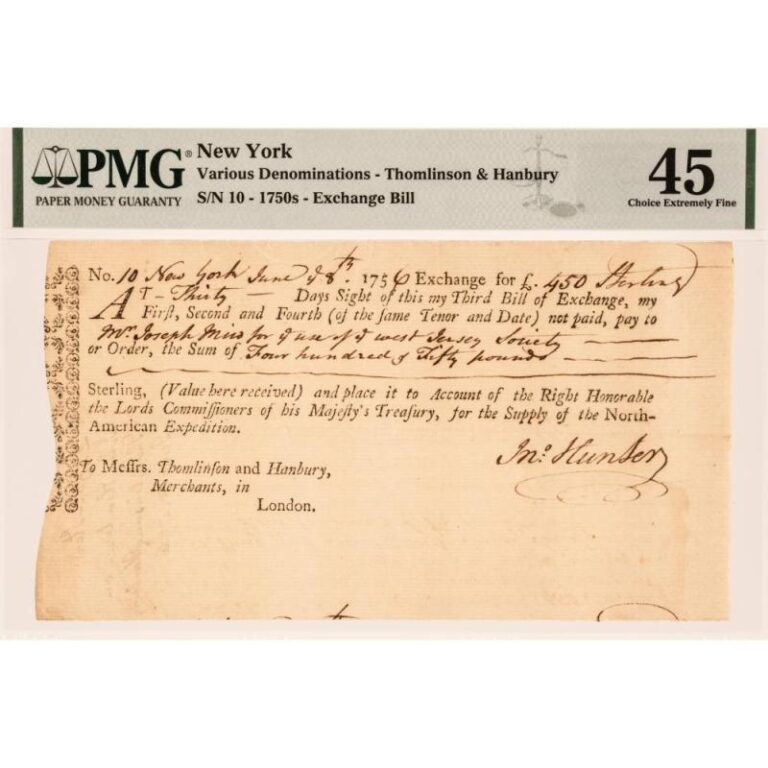 PMG®
PAPER MONEY GUARANTY
New York
Various Denominations - Thomlinson & Hanbury
S/N 10 - 1750s - Exchange Bill
45
Choice Extremely Fine
No. 10 New York June ye 8th. 1756 Exchange for £. 450 Sterling
AT - Thirty - Days Sight of this my Third Bill of Exchange, my
Firſt, Second and Fourth (of the ſame Tenor and Date) not paid, pay to
Mr. Joseph for ye use of ye west Jersey Society
or Order, the Sum of Four hundred & Fifty pounds
Sterling, (Value here received) and place it to Account of the Right Honorable
the Lords Commiſſioners of his Majeſty's Treaſury, for the Supply of the North-
American Expedition.
Jno. Hunter
To Meſſrs. Thomlinſon and Hanbury,
Merchants, in
London.